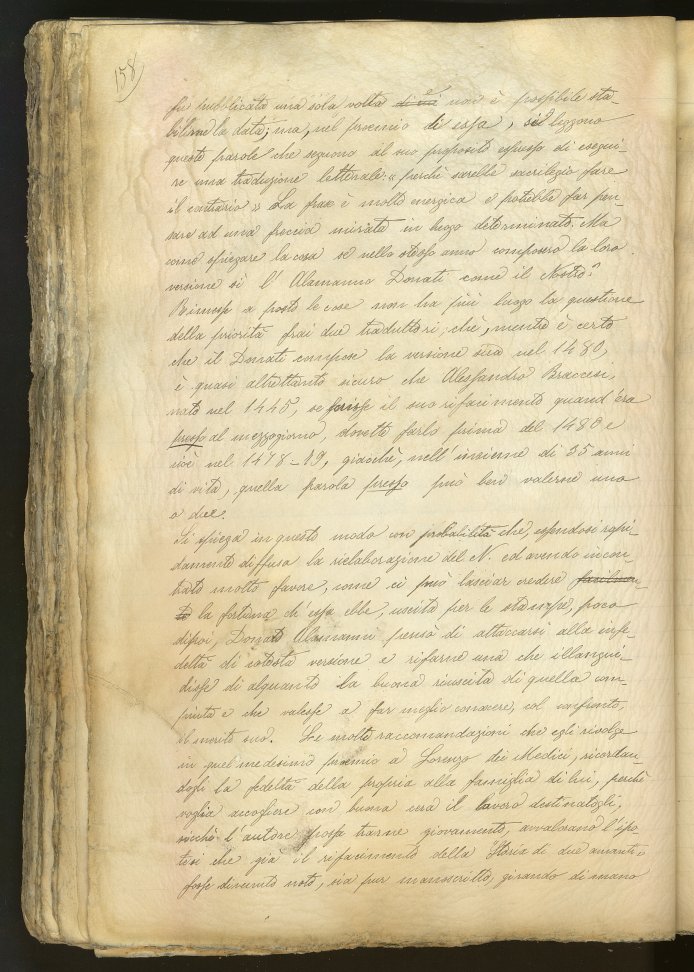 158
fu pubblicata una sola volta di cui e non è possibile sta-
bilirne la data; ma, nel proemio di essa, si leggono
queste parole che seguono al suo proposito espresso di esegui-
re una traduzione letterale: « perchè sarebbe sacrilegio fare
il contrario » La frase è molto energica e potrebbe far pen-
sare ad una freccia mirata in luogo determinato. Ma
come spiegare la cosa se nello stesso anno composero la loro
versione sì l' Alamanno Donati come il Nostro?
Rimesse a posto le cose non ha più luogo la questione
della priorità frai due traduttori; chè, mentre è certo
che il Donati compose la versione sua nel 1480,
è quasi altrettanto sicuro che Alessandro Braccesi,
nato nel 1445, se forisse il suo rifacimento quand'era
presso al mezzogiorno, dovette farlo prima del 1480 e
cioè nel 1478-79, giacchè, nell'insieme di 35 anni
di vita, quella parola presso può ben valerne uno
o due.
Si spiega in questo modo con probabilità che, essendosi rapi-
damente diffusa la rielaborazione del N. ed avendo incon-
trato molto favore, come ci può lasciar credere facilmen-
te la fortuna ch'essa ebbe, uscita per le stampe, poco
dipoi, Donati Alamanni pensò di attaccarsi alla infe-
deltà di cotesta versione e rifarne una che illangui-
disse di alquanto la buona riuscita di quella com-
piuta e che valesse a far meglio conoscere, col confronto,
il merito suo. Le molte raccomandazioni che egli rivolge
in quel medesimo proemio a Lorenzo dei Medici, ricordan-
dogli la fedeltà della propria alla famiglia di lui, perchè
voglia accogliere con buona cera il lavoro destinatogli,
sicchè l'autore possa trarne giovamento, avvalorano l'ipo-
tesi che già il rifacimento della Storia di due amanti
fosse divenuto noto, sia pur manoscritto, girando di mano